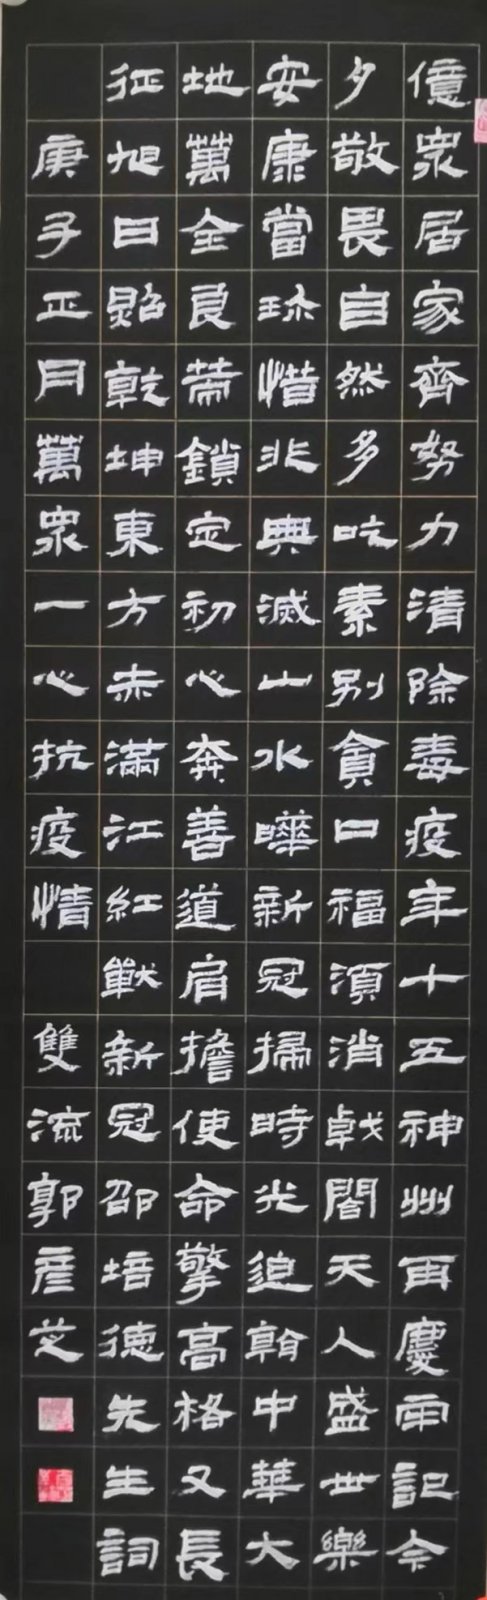 億眾居家齊努力清除毒疫年十五神州再慶雨記今
夕敬畏自然多吃素別貪口福須消戟閣天人盛世樂
安康當珎惜非典滅山水曄新冠掃時光迫翰中華大
地萬全良策鎖定初心奔善道肩擔使命擎高格又長
征旭日照乾坤東方赤滿江紅獻新冠邵培德先生詞
庚子正月萬眾一心抗疫情 雙流郭彥芝